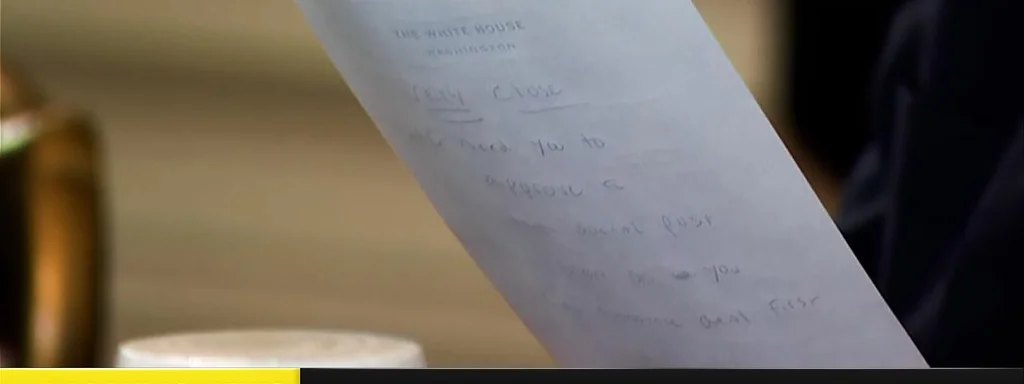 THE WHITE HOUSE
WASHINGTON
Very Close
We need you to
approve a
Social post
you
announce deal first